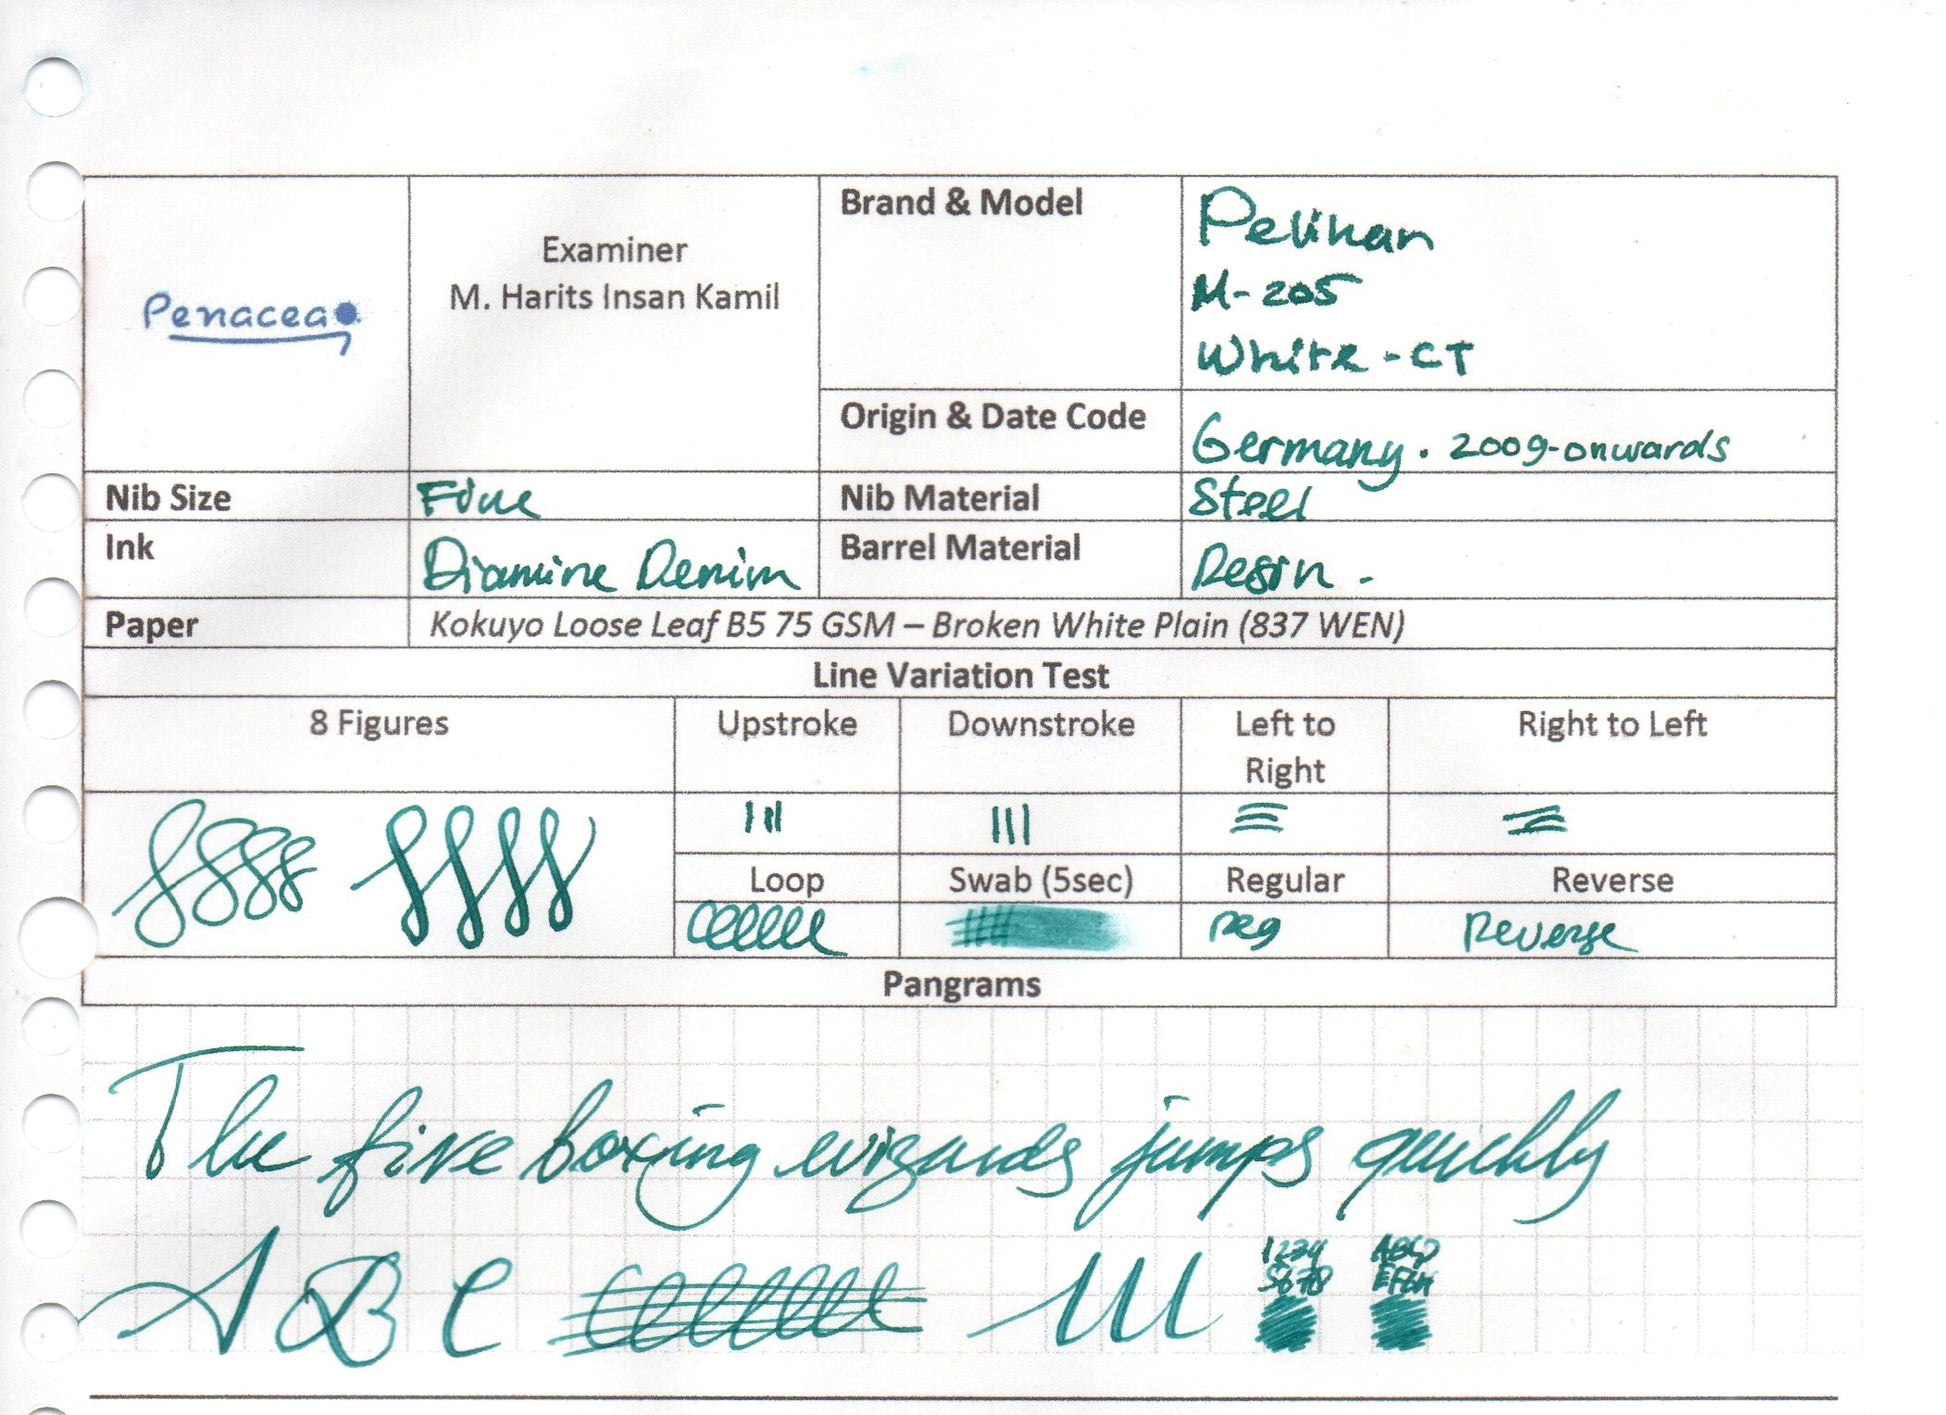 Penacea
Examiner
M. Harits Insan Kamil
Brand & Model
Pelikan
M-205
White - CT
Origin & Date Code
Germany. 2009-onwards
Nib Size
Fine
Nib Material
Steel
Ink
Diamine Denim
Barrel Material
Resin.
Paper
Kokuyo Loose Leaf B5 75 GSM – Broken White Plain (837 WEN)
Line Variation Test
8 Figures
Upstroke
Downstroke
Left to
Right
Right to Left
Loop
Swab (5sec)
Regular
Reverse
Reg
Reverse
Pangrams
The five boxing wizards jumps quickly
A B C
1234
5678
ABCD
EFGH